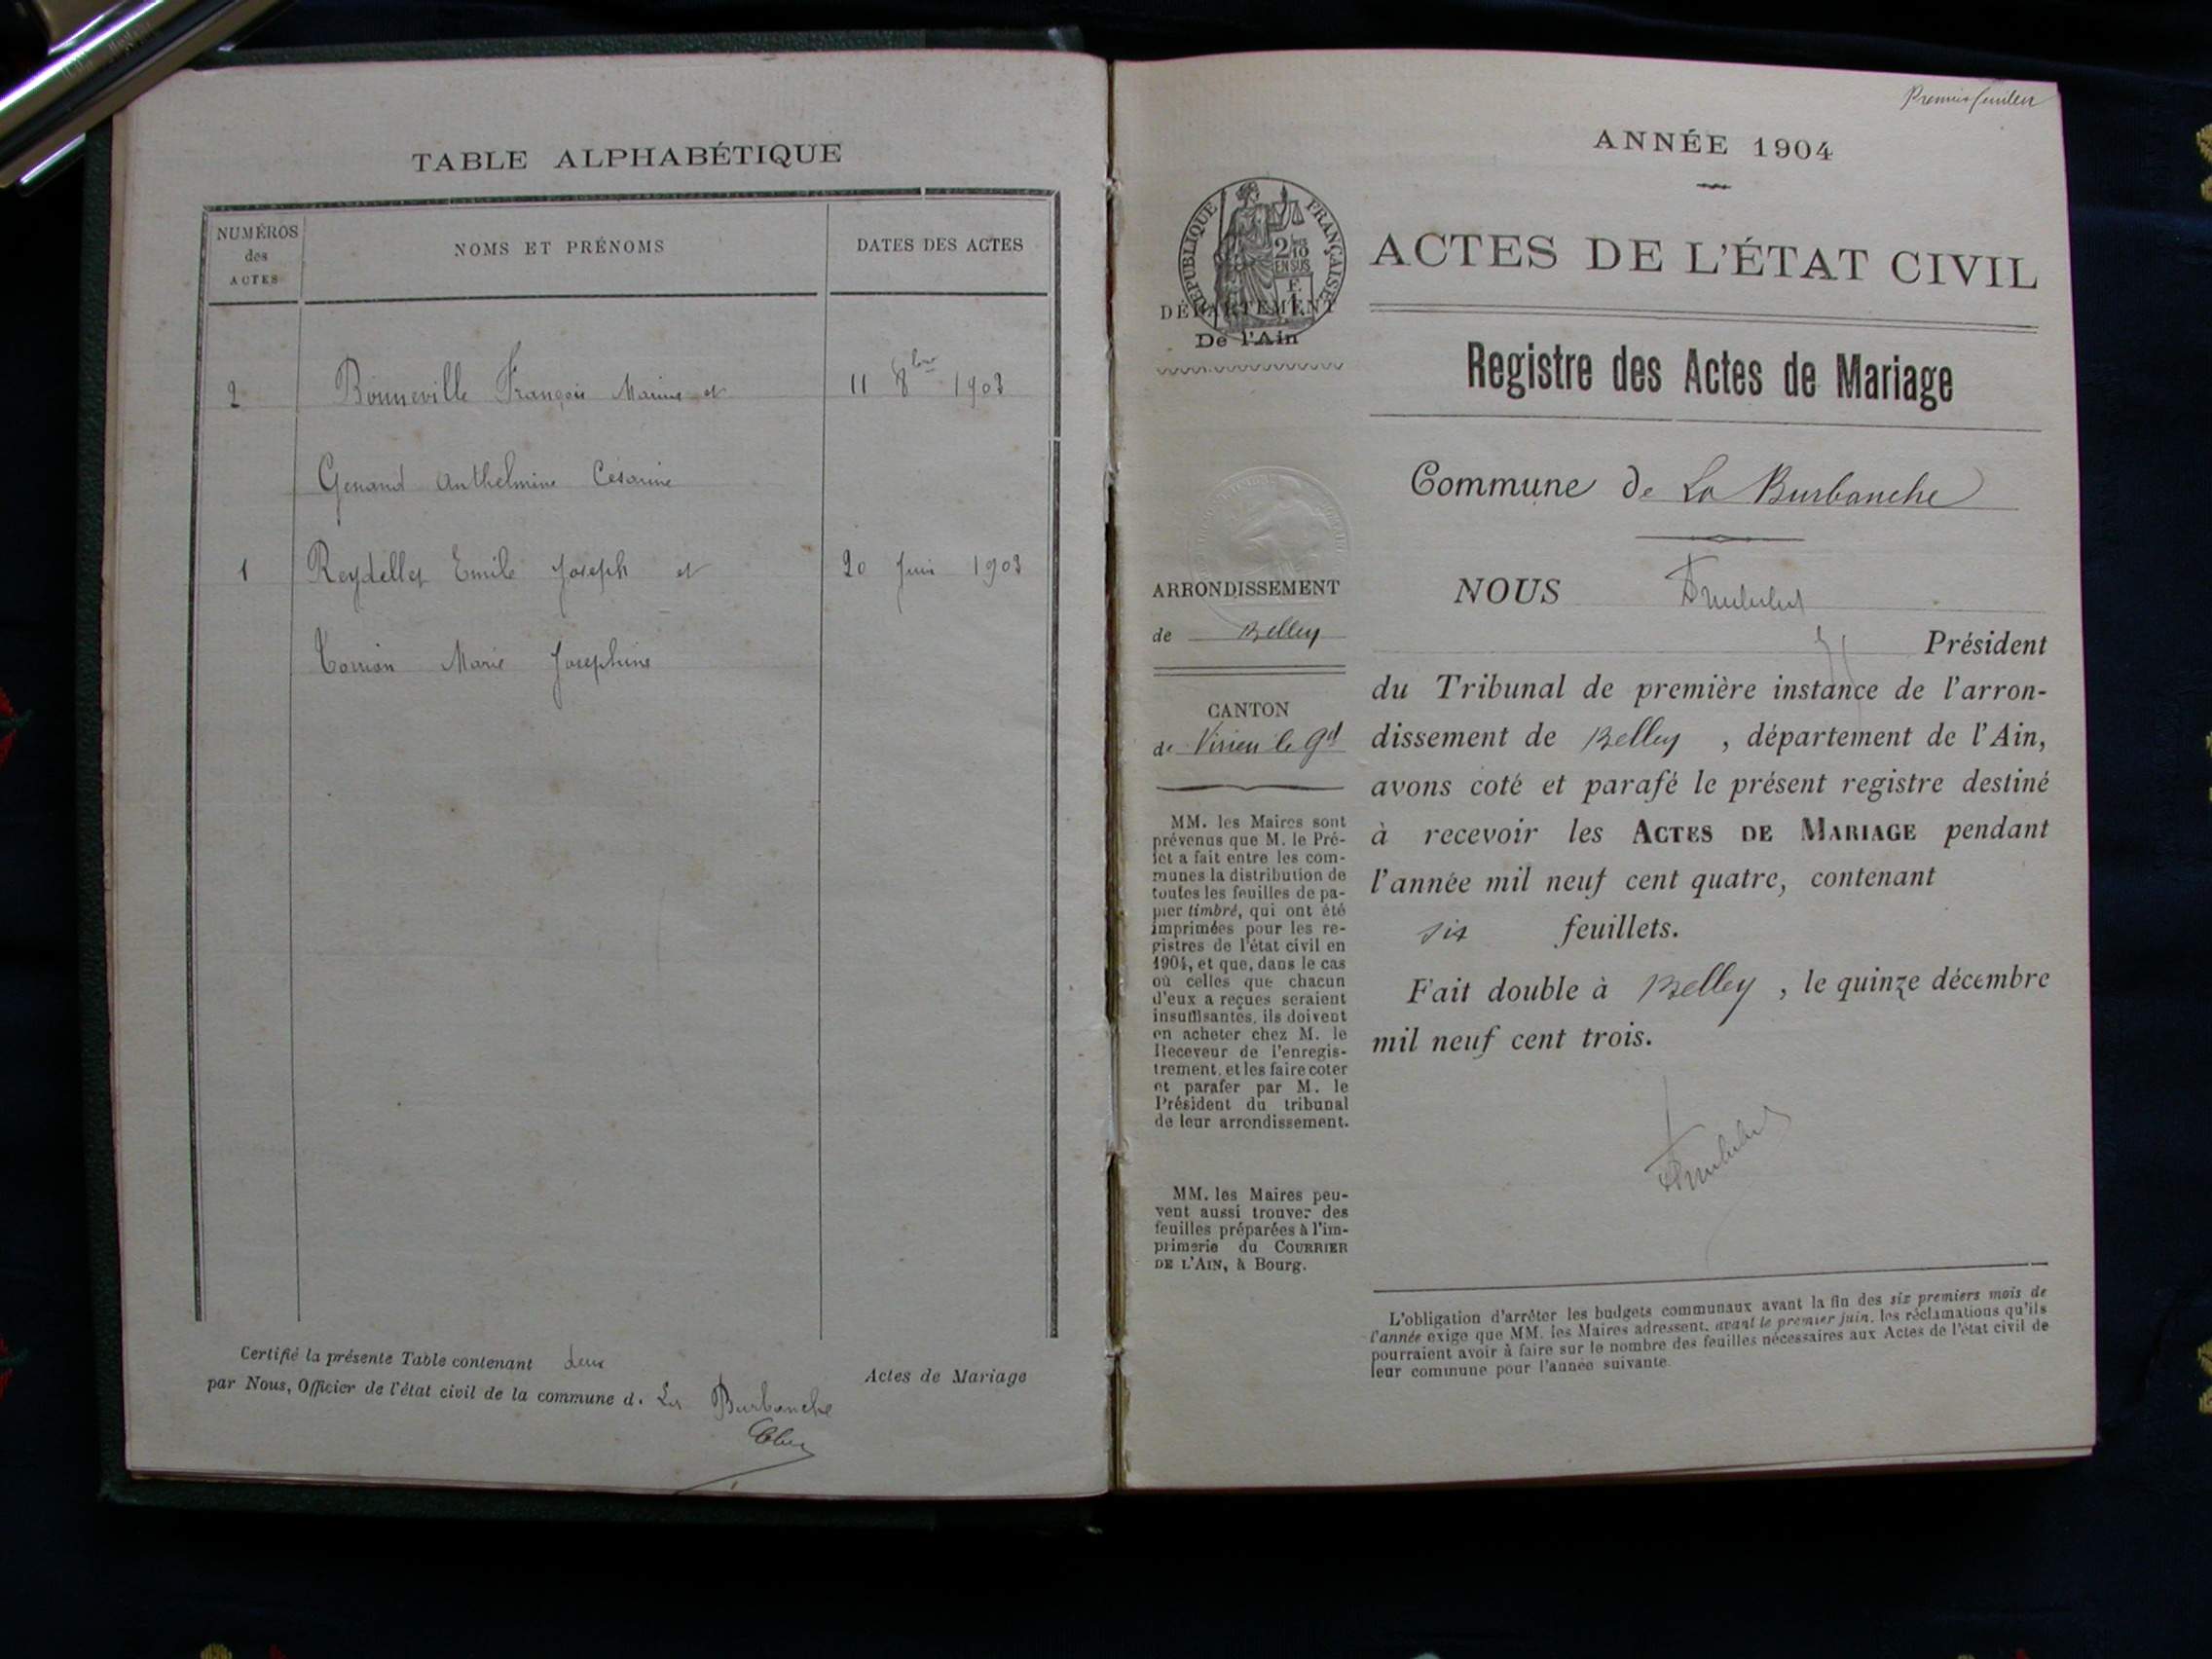 TABLE ALPHABÉTIQUE
NUMÉROS
des
ACTES
NOMS ET PRÉNOMS
DATES DES ACTES
2 Bonneville François Marius et 11 8bre 1903
Genand Anthelmine Césarine
1 Reydellet Emile Joseph et 20 Juin 1903
Marie Josephine
Certifié la présente Table contenant deux Actes de Mariage
par Nous, Officier de l'état civil de la commune d. La Burbanche
Premier feuillet
ANNÉE 1904
RÉPUBLIQUE FRANÇAISE
2/10
EN SUS
F.
1
DÉPARTEMENT
De l'Ain
ARRONDISSEMENT
de Belley
CANTON
de Virieu le Gd
MM. les Maires sont
prévenus que M. le Pré-
fet a fait entre les com-
munes la distribution de
toutes les feuilles de pa-
pier timbré, qui ont été
imprimées pour les re-
gistres de l'état civil en
1904, et que, dans le cas
où celles que chacun
d'eux a reçues seraient
insuffisantes, ils doivent
en acheter chez M. le
Receveur de l'enregis-
trement, et les faire coter
et parafer par M. le
Président du tribunal
de leur arrondissement.
MM. les Maires peu-
vent aussi trouver des
feuilles préparées à l'im-
primerie du COURRIER
DE L'AIN, à Bourg.
ACTES DE L'ÉTAT CIVIL
Registre des Actes de Mariage
Commune de La Burbanche
NOUS
Président
du Tribunal de première instance de l'arron-
dissement de Belley , département de l'Ain,
avons coté et parafé le présent registre destiné
à recevoir les ACTES DE MARIAGE pendant
l'année mil neuf cent quatre, contenant
six feuillets.
Fait double à Belley , le quinze décembre
mil neuf cent trois.
L'obligation d'arrêter les budgets communaux avant la fin des six premiers mois de
l'année exige que MM. les Maires adressent, avant le premier juin, les réclamations qu'ils
pourraient avoir à faire sur le nombre des feuilles nécessaires aux Actes de l'état civil de
leur commune pour l'année suivante.